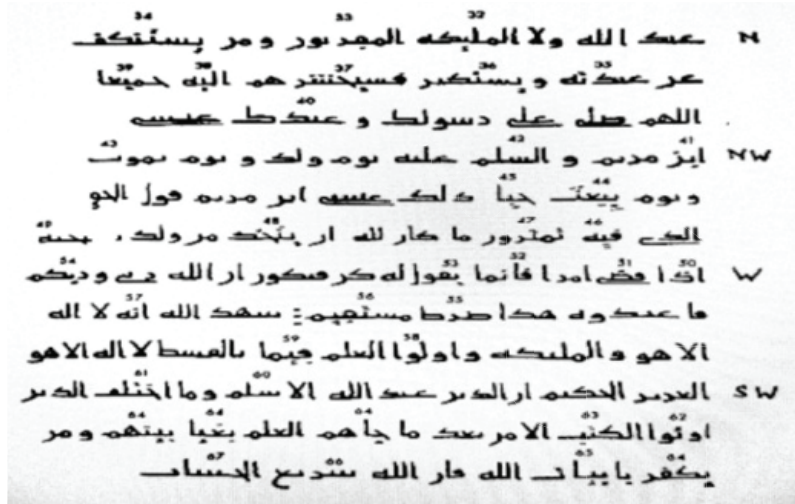 34 33 32
N عبد الله ولا المليكه المقربون ومن يستنكف
39 38 37 36 35
عن عبدته ويستكبر فسيحشرهم اليه جميعا
40
اللهم صلى على رسولك و عبدك عيسى
43 42 41
NW ابن مريم و السلم عليه يوم ولد و يوم يموت
45 44
ويوم يبعث حيا ذلك عيسى ابن مريم قول الحق
49 48 47 46
الذى فيه تمترون ما كان لله ان يتخذ من ولد، سبحنه
54 53 52 51 50
W اذا قضى امرا فانما يقول له كن فيكون ان الله ربى وربكم
57 56 55
فاعبدوه هذا صرط مستقيم: شهد الله انه لا اله
59 58
الا هو والمليكه واولوا العلم قيما بالقسط لا اله الا هو
61 60
SW العزيز الحكيم ان الدين عند الله الاسلم وما اختلف الذين
64 64 64 63 62
اوتوا الكتب الا من بعد ما جاهم العلم بغيا بينهم ومن
67 65 64
يكفر بايات الله فان الله سريع الحساب